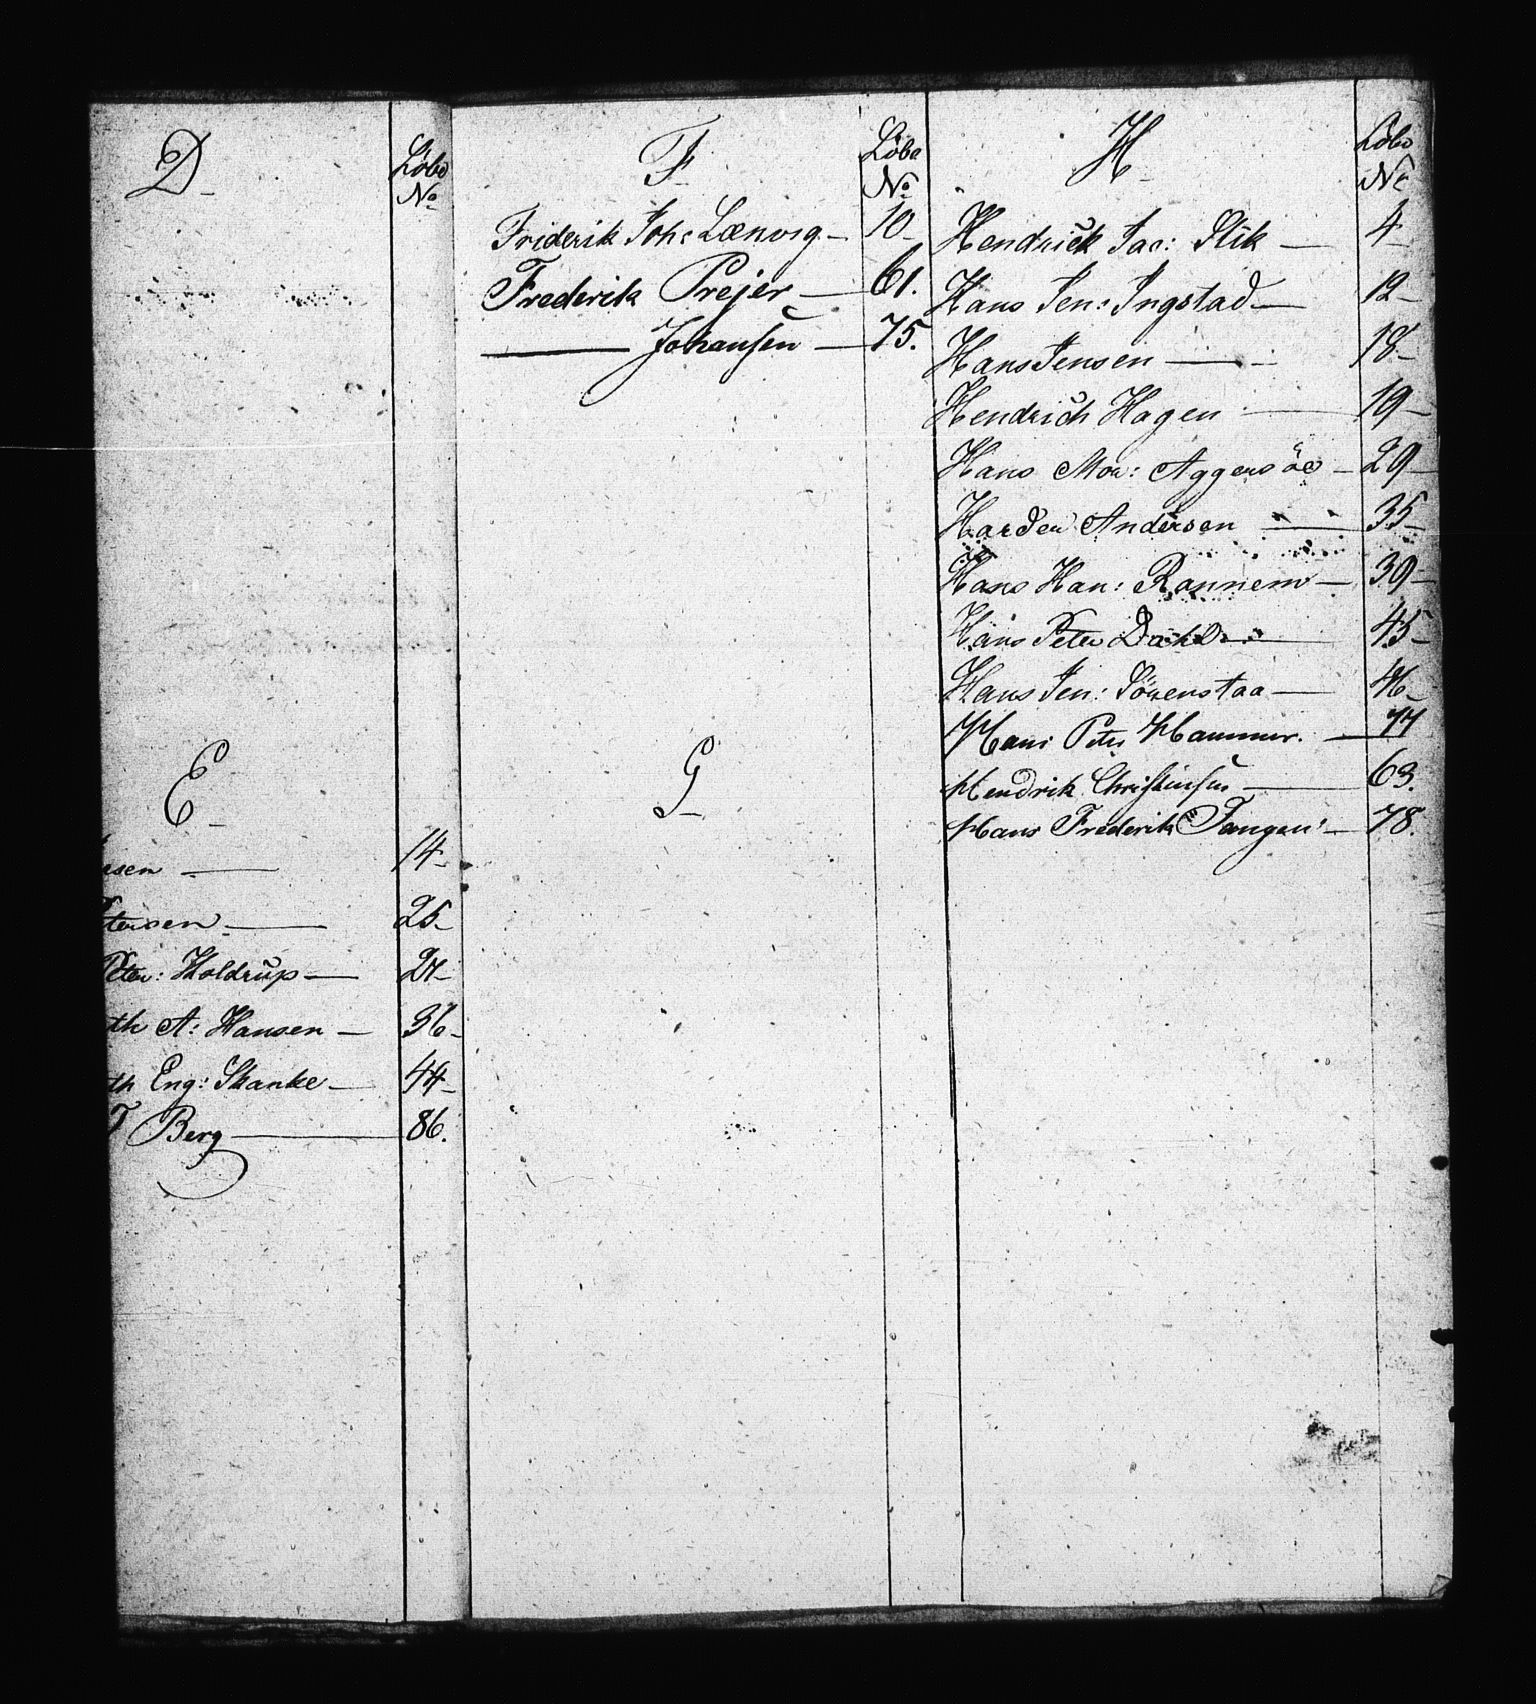 D
Løbe
No
E
sen — 14
tersen — 25
Peter: Holdrup — 27
th A: Hansen — 36
th Eng: Skanke — 44
T Berg — 86.
F
Løbe
No
Friderik Joh: Lænvig — 10
Frederik Prejer — 61.
— Johansen — 75.
G
H
Løbe
No
Hendrick Jac: Slik — 4
Hans Jen: Ingstad — 12
Hans Jensen — 18
Hendrich Hagen — 19
Hans Mor: Aggersöe — 29
Harder Andersen — 35
Hans Han: Rannem — 39
Hans Peter Dahl — 45
Hans Jen: Sörenstaa — 46
Hans Peter Hammer. — 77
Hendrik Christensen — 63.
Hans Frederik Tangen — 78.